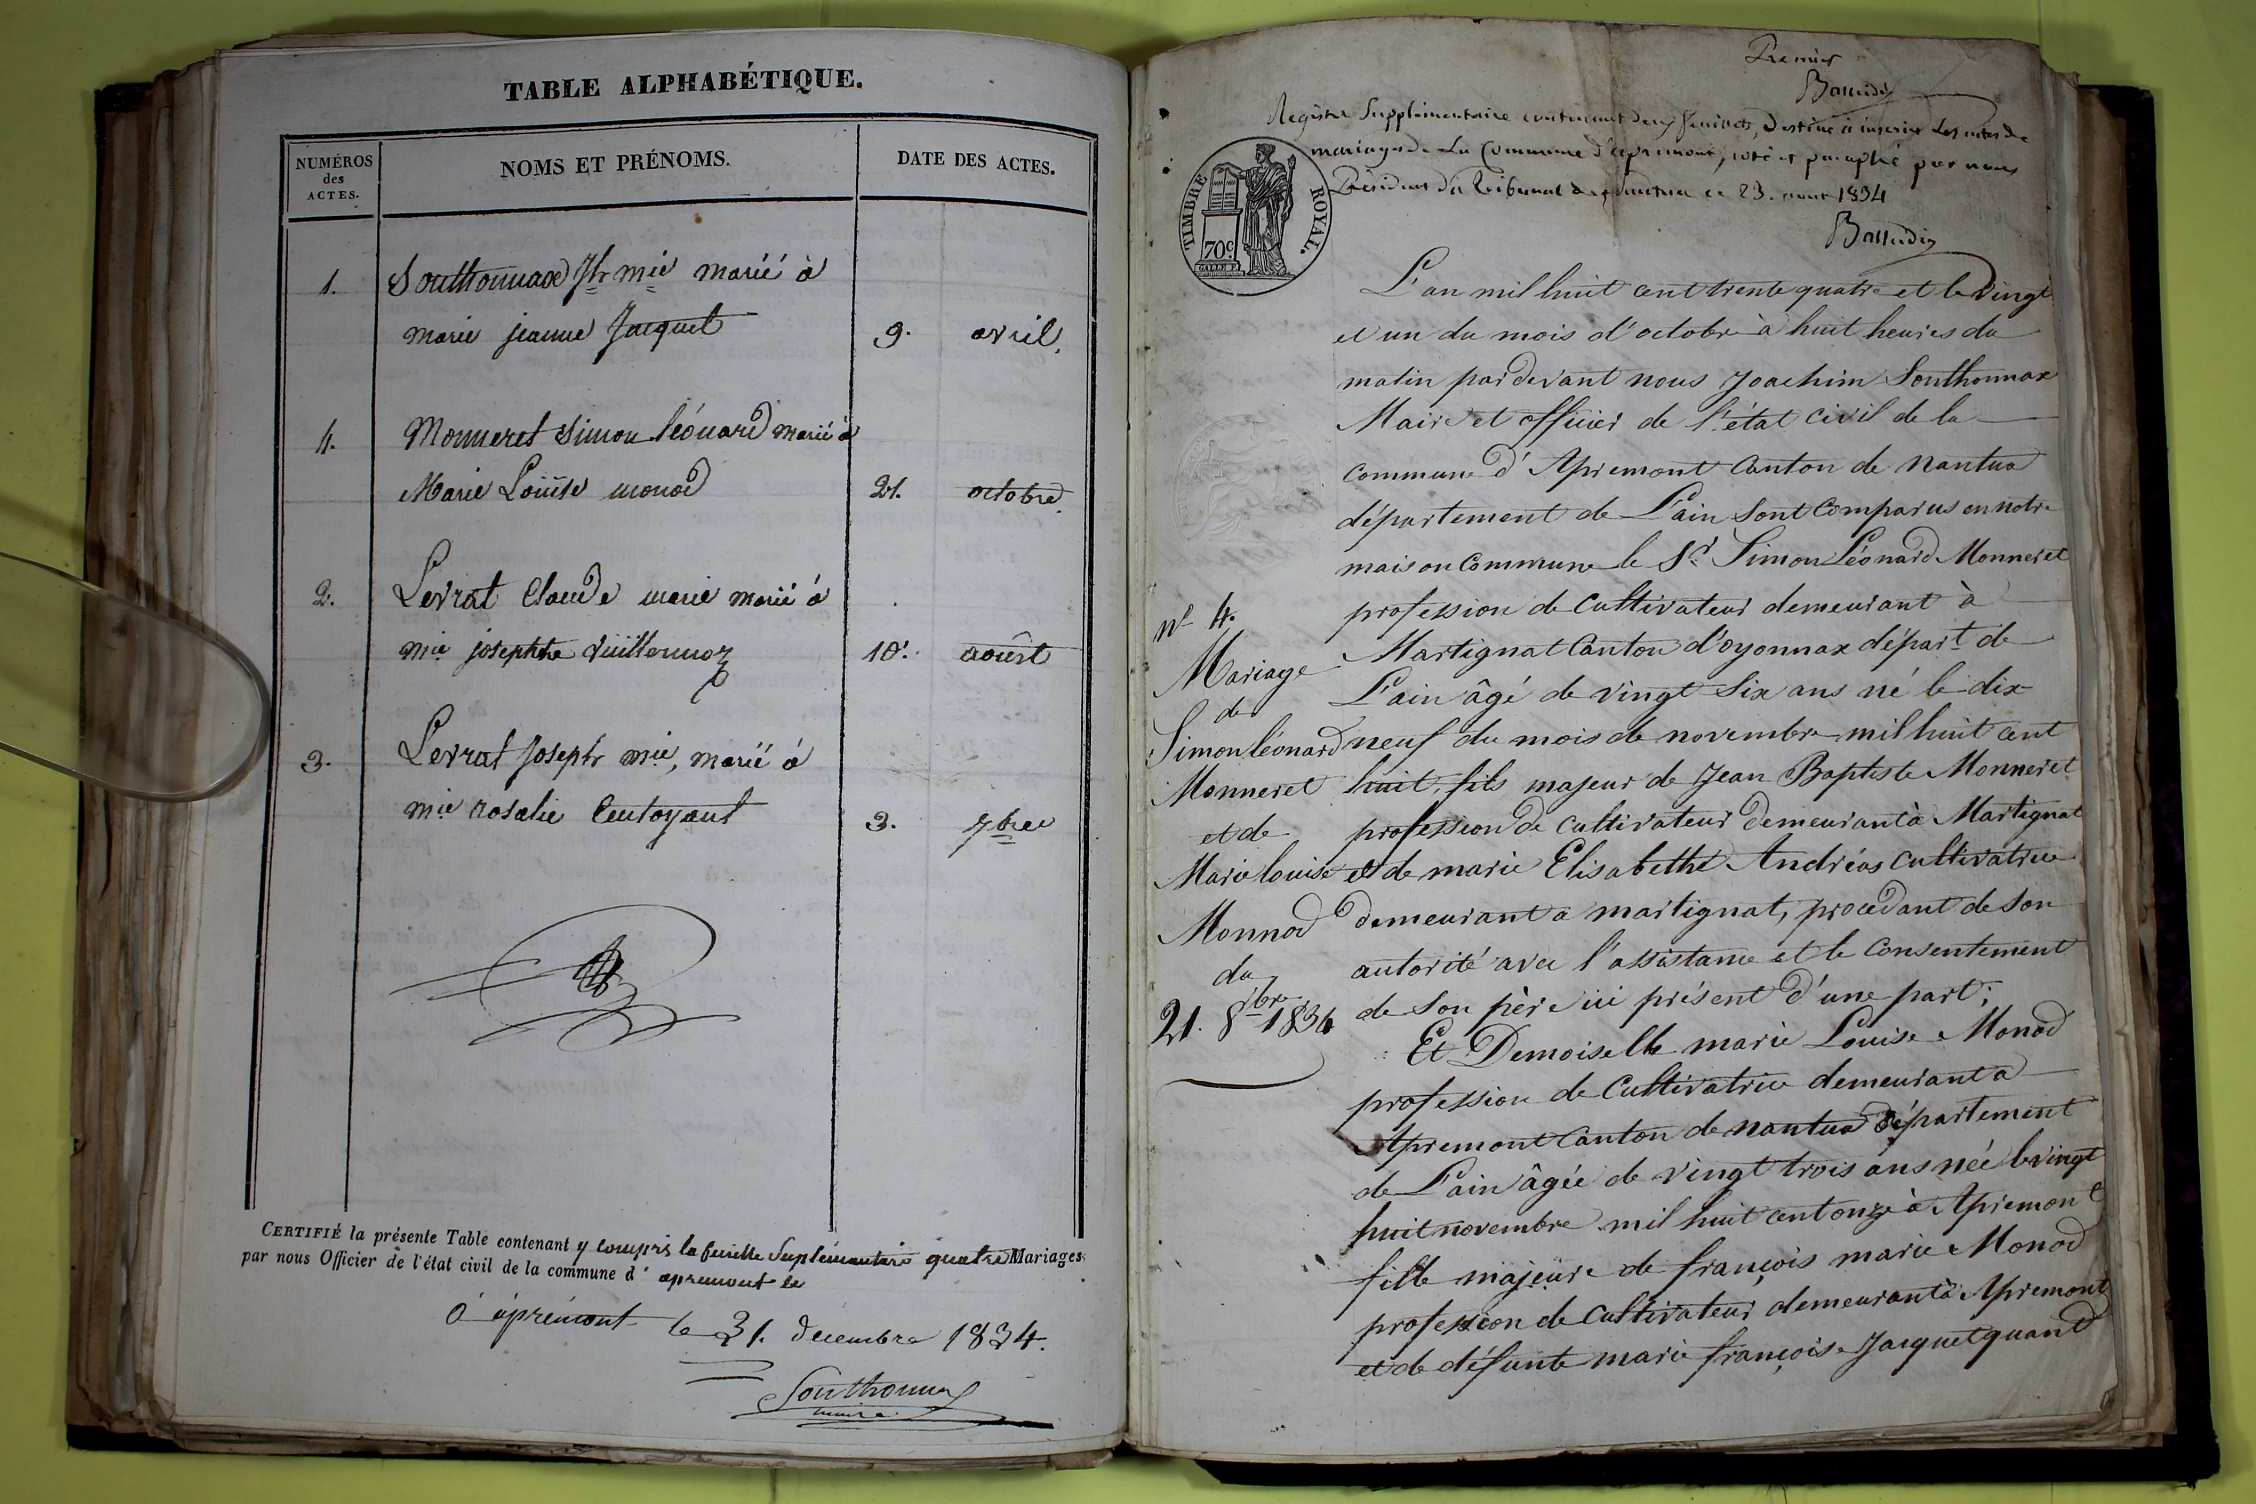 TABLE ALPHABÉTIQUE.
NUMÉROS des ACTES.
NOMS ET PRÉNOMS.
DATE DES ACTES.
1. Southonnax Jh mie marié à
marie jeanne Jacquet 9. avril.
4. Monneret Simon léonard marié à
Marie Louise monod 21. octobre.
2. Levrat Claude marie marié à
mie josephte Vuillermoz 10. aoust
3. Levrat Joseph mie, marié à
mie rosalie Centoyant 3. 7bre
CERTIFIÉ la présente Table contenant y compris la feuille Suplémentaire quatre Mariages
par nous Officier de l'état civil de la commune d' apremont le
à apremont le 31. décembre 1834.
Southonnax
maire
Premier
Registre Supplémentaire contenant deux feuillets, destiné à inscrire les actes de
mariages de La Commune d'apremont, coté et paraphé par nous
Président du Tribunal de nantua ce 23. aout 1834
TIMBRE ROYAL.
70c
L'an mil huit cent trente quatre et le vingt
et un du mois d'octobre à huit heures du
matin pardevant nous Joachim Southonnax
Maire et officier de l'état civil de la
commune d'Apremont Canton de nantua
département de L'ain Sont Comparus en notre
maison Commune le Sr Simon Léonard Monneret
profession de Cultivateur demeurant à
Martignat Canton d'oyonnax départ. de
L'ain âgé de vingt Six ans né le dix
neuf du mois de novembre mil huit cent
huit, fils majeur de Jean Baptiste Monneret
profession de Cultivateur demeurant à Martignat
et de marie Elisabethe Andréas Cultivatrice
demeurant a martignat, procédant de Son
autorité avec l'assistance et le Consentement
de Son père ici présent d'une part;
Et Demoiselle marie Louise Monod
profession de Cultivatrice demeurant a
Apremont Canton de nantua département
de L'ain âgée de vingt trois ans née le vingt
huit novembre mil huit cent onze à Apremont
fille majeure de françois marie Monod
profession de Cultivateur demeurant à Apremont
et de défunte marie françoise Jacquet quand
no 4.
Mariage
de
Simon léonard
Monneret
et de
Marie louise
Monnod
du
21. 8bre 1834